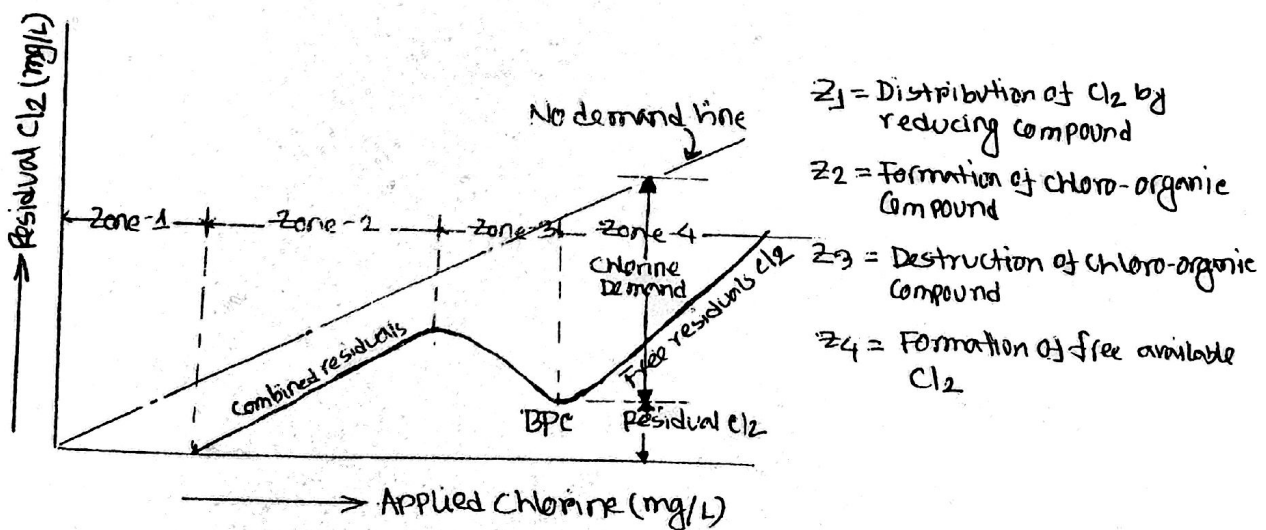 Residual Cl2 (mg/L)
No demand line
Zone-1
Zone-2
Zone-3
Zone-4
Chlorine
Demand
Combined residuals
Free residuals Cl2
BPC
Residual Cl2
Applied Chlorine (mg/L)
Z1 = Distribution of Cl2 by
reducing compound
Z2 = Formation of chloro-organic
Compound
Z3 = Destruction of chloro-organic
Compound
Z4 = Formation of free available
Cl2